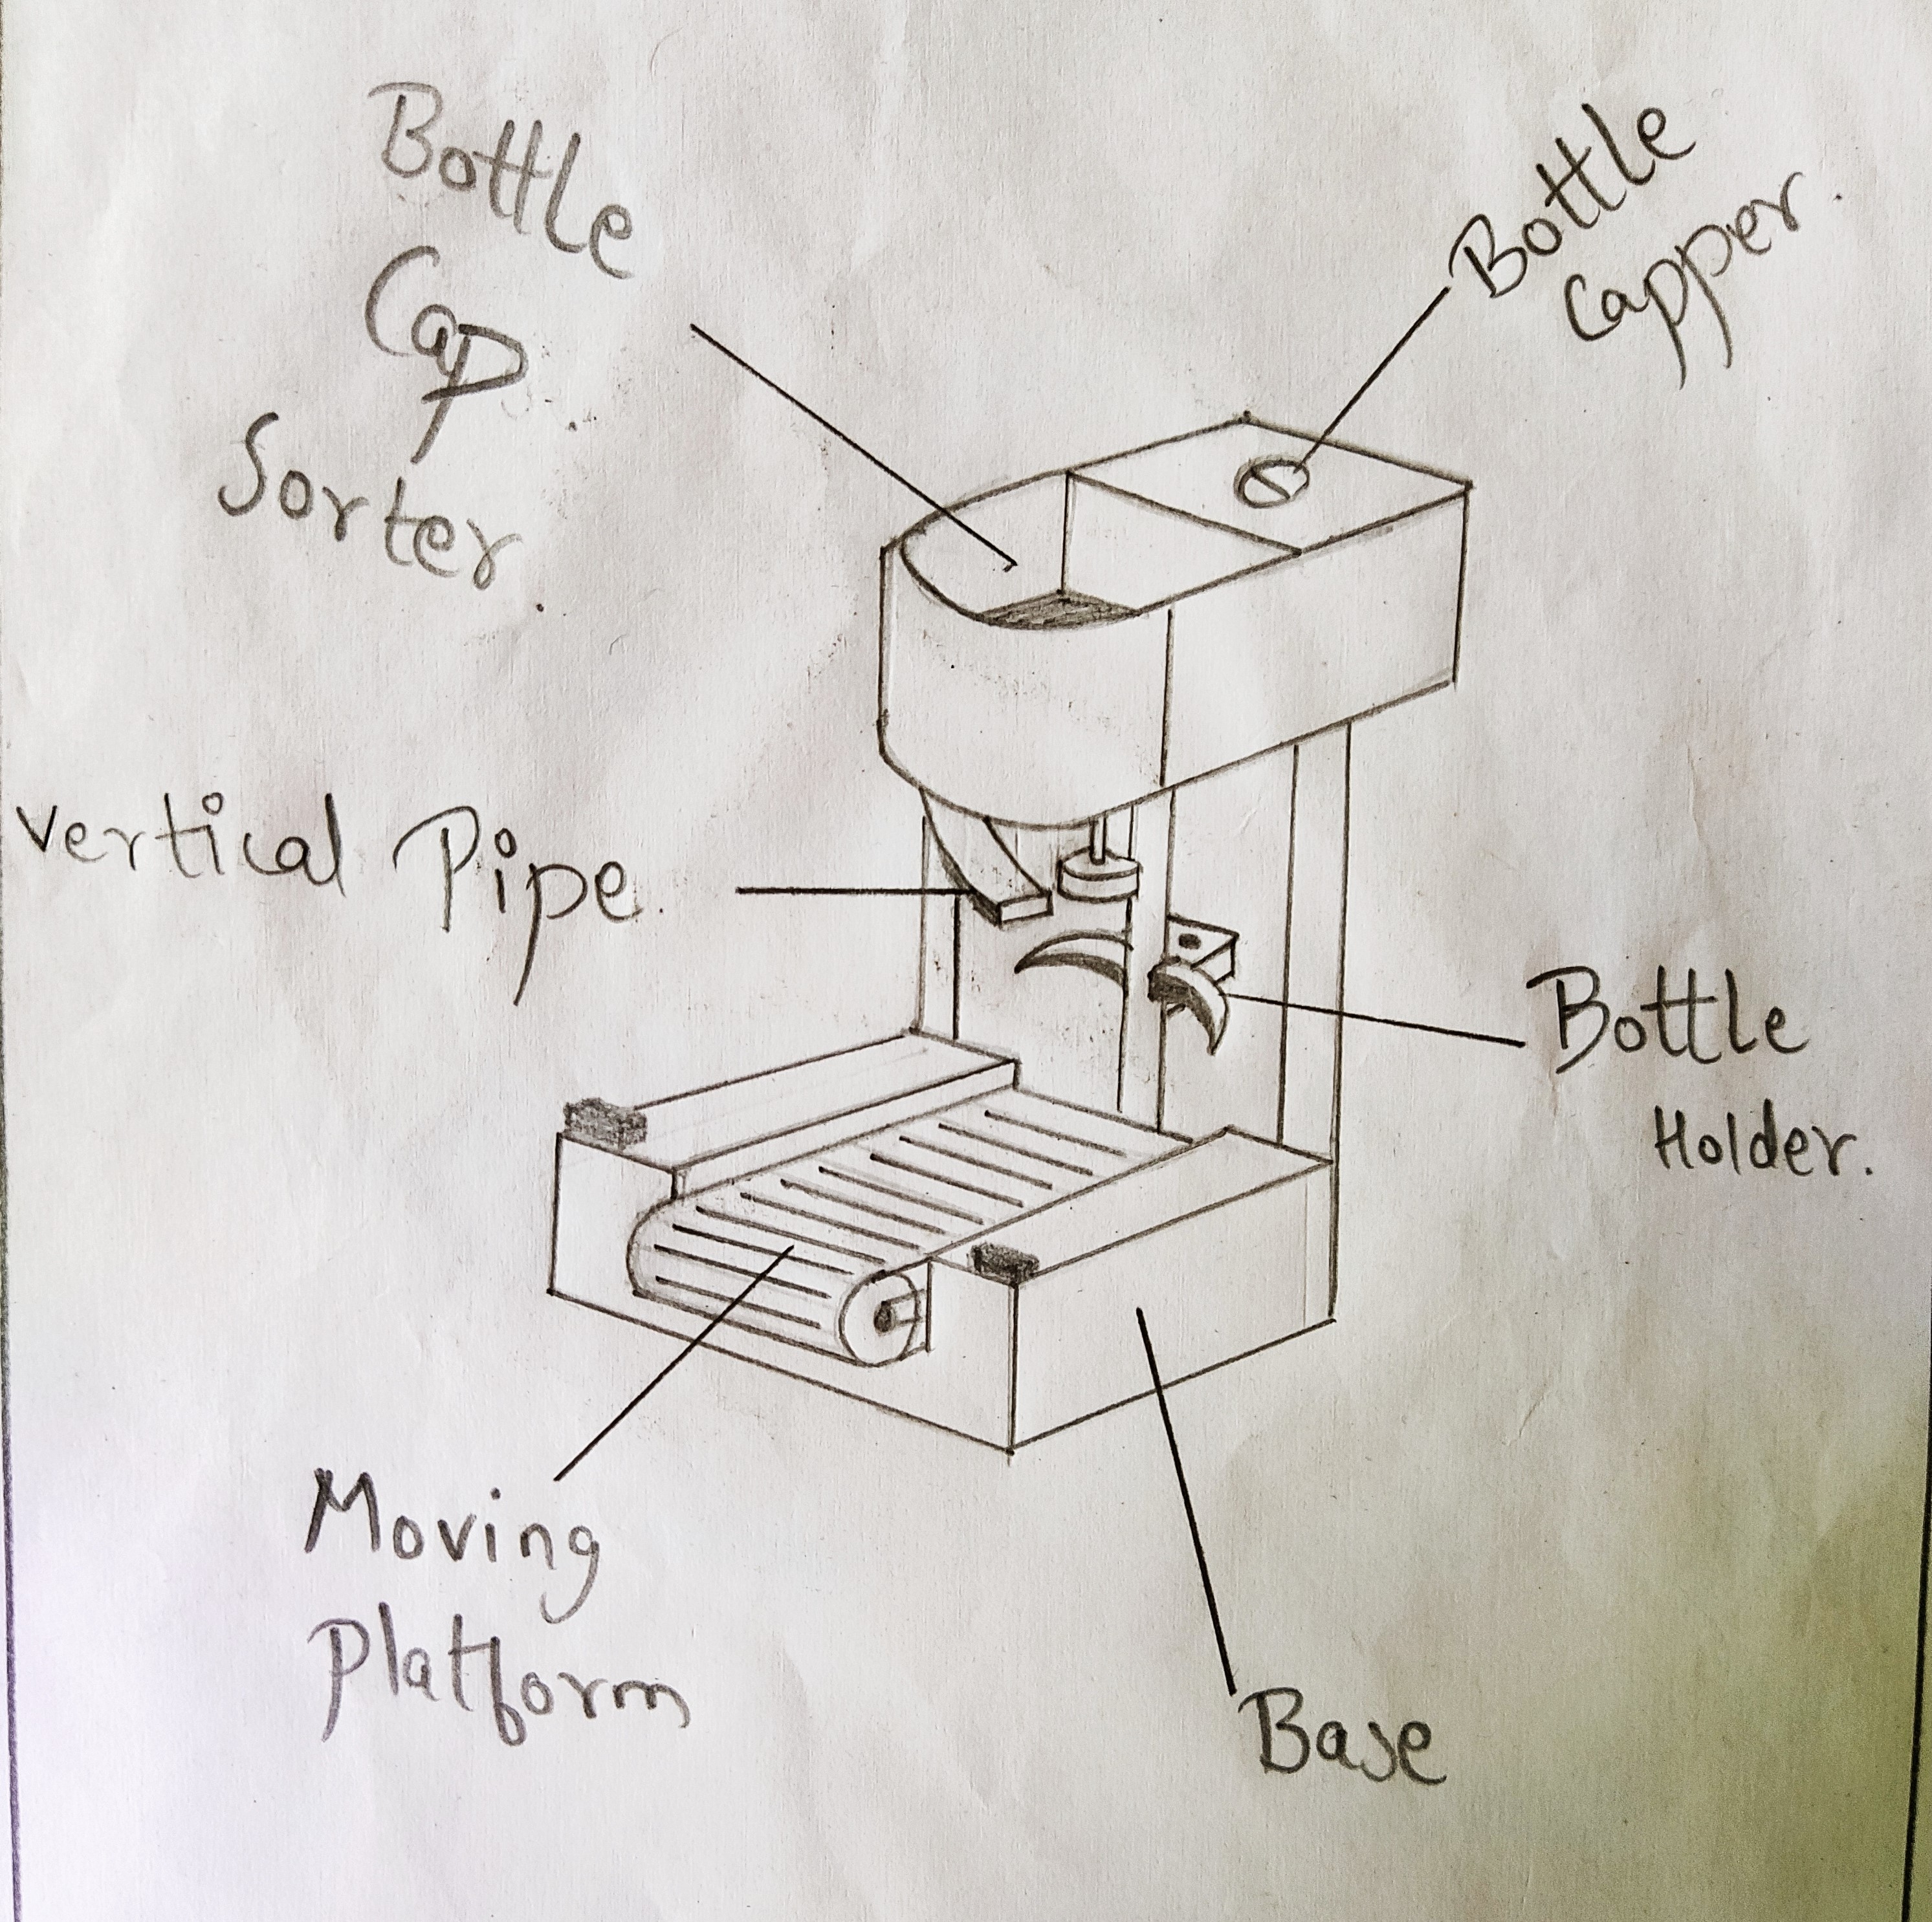 Bottle
Cap
Sorter.
Bottle
Capper.
Vertical Pipe.
Bottle
Holder.
Moving
Platform
Base